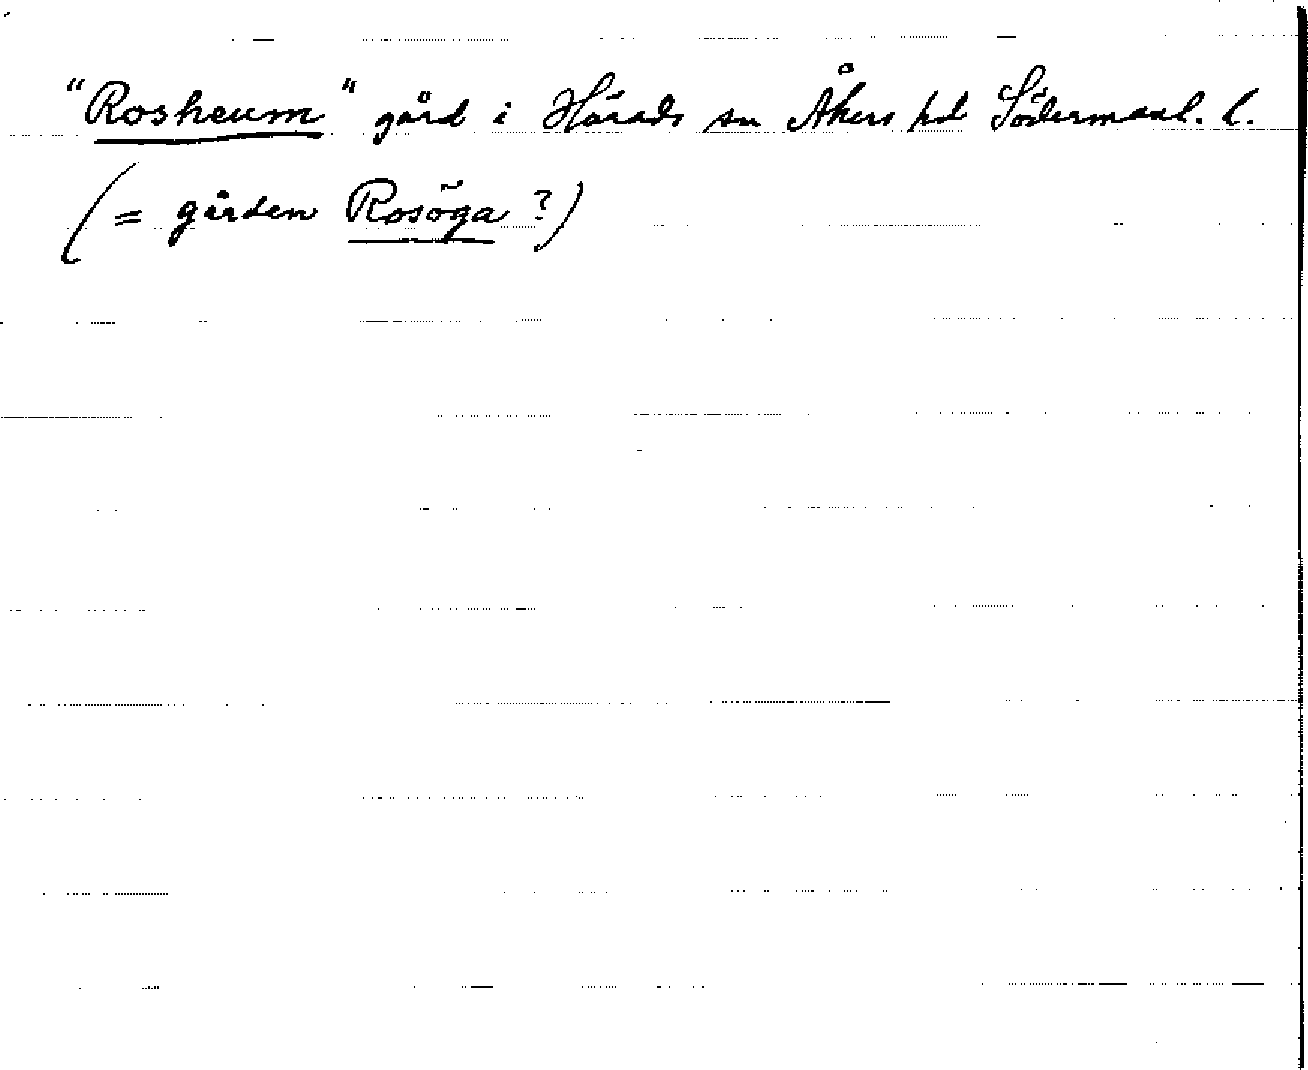 "Rosheum" gård i Härads sn Åkers hd Södermanl. l.
(= gården Rosöga ?)